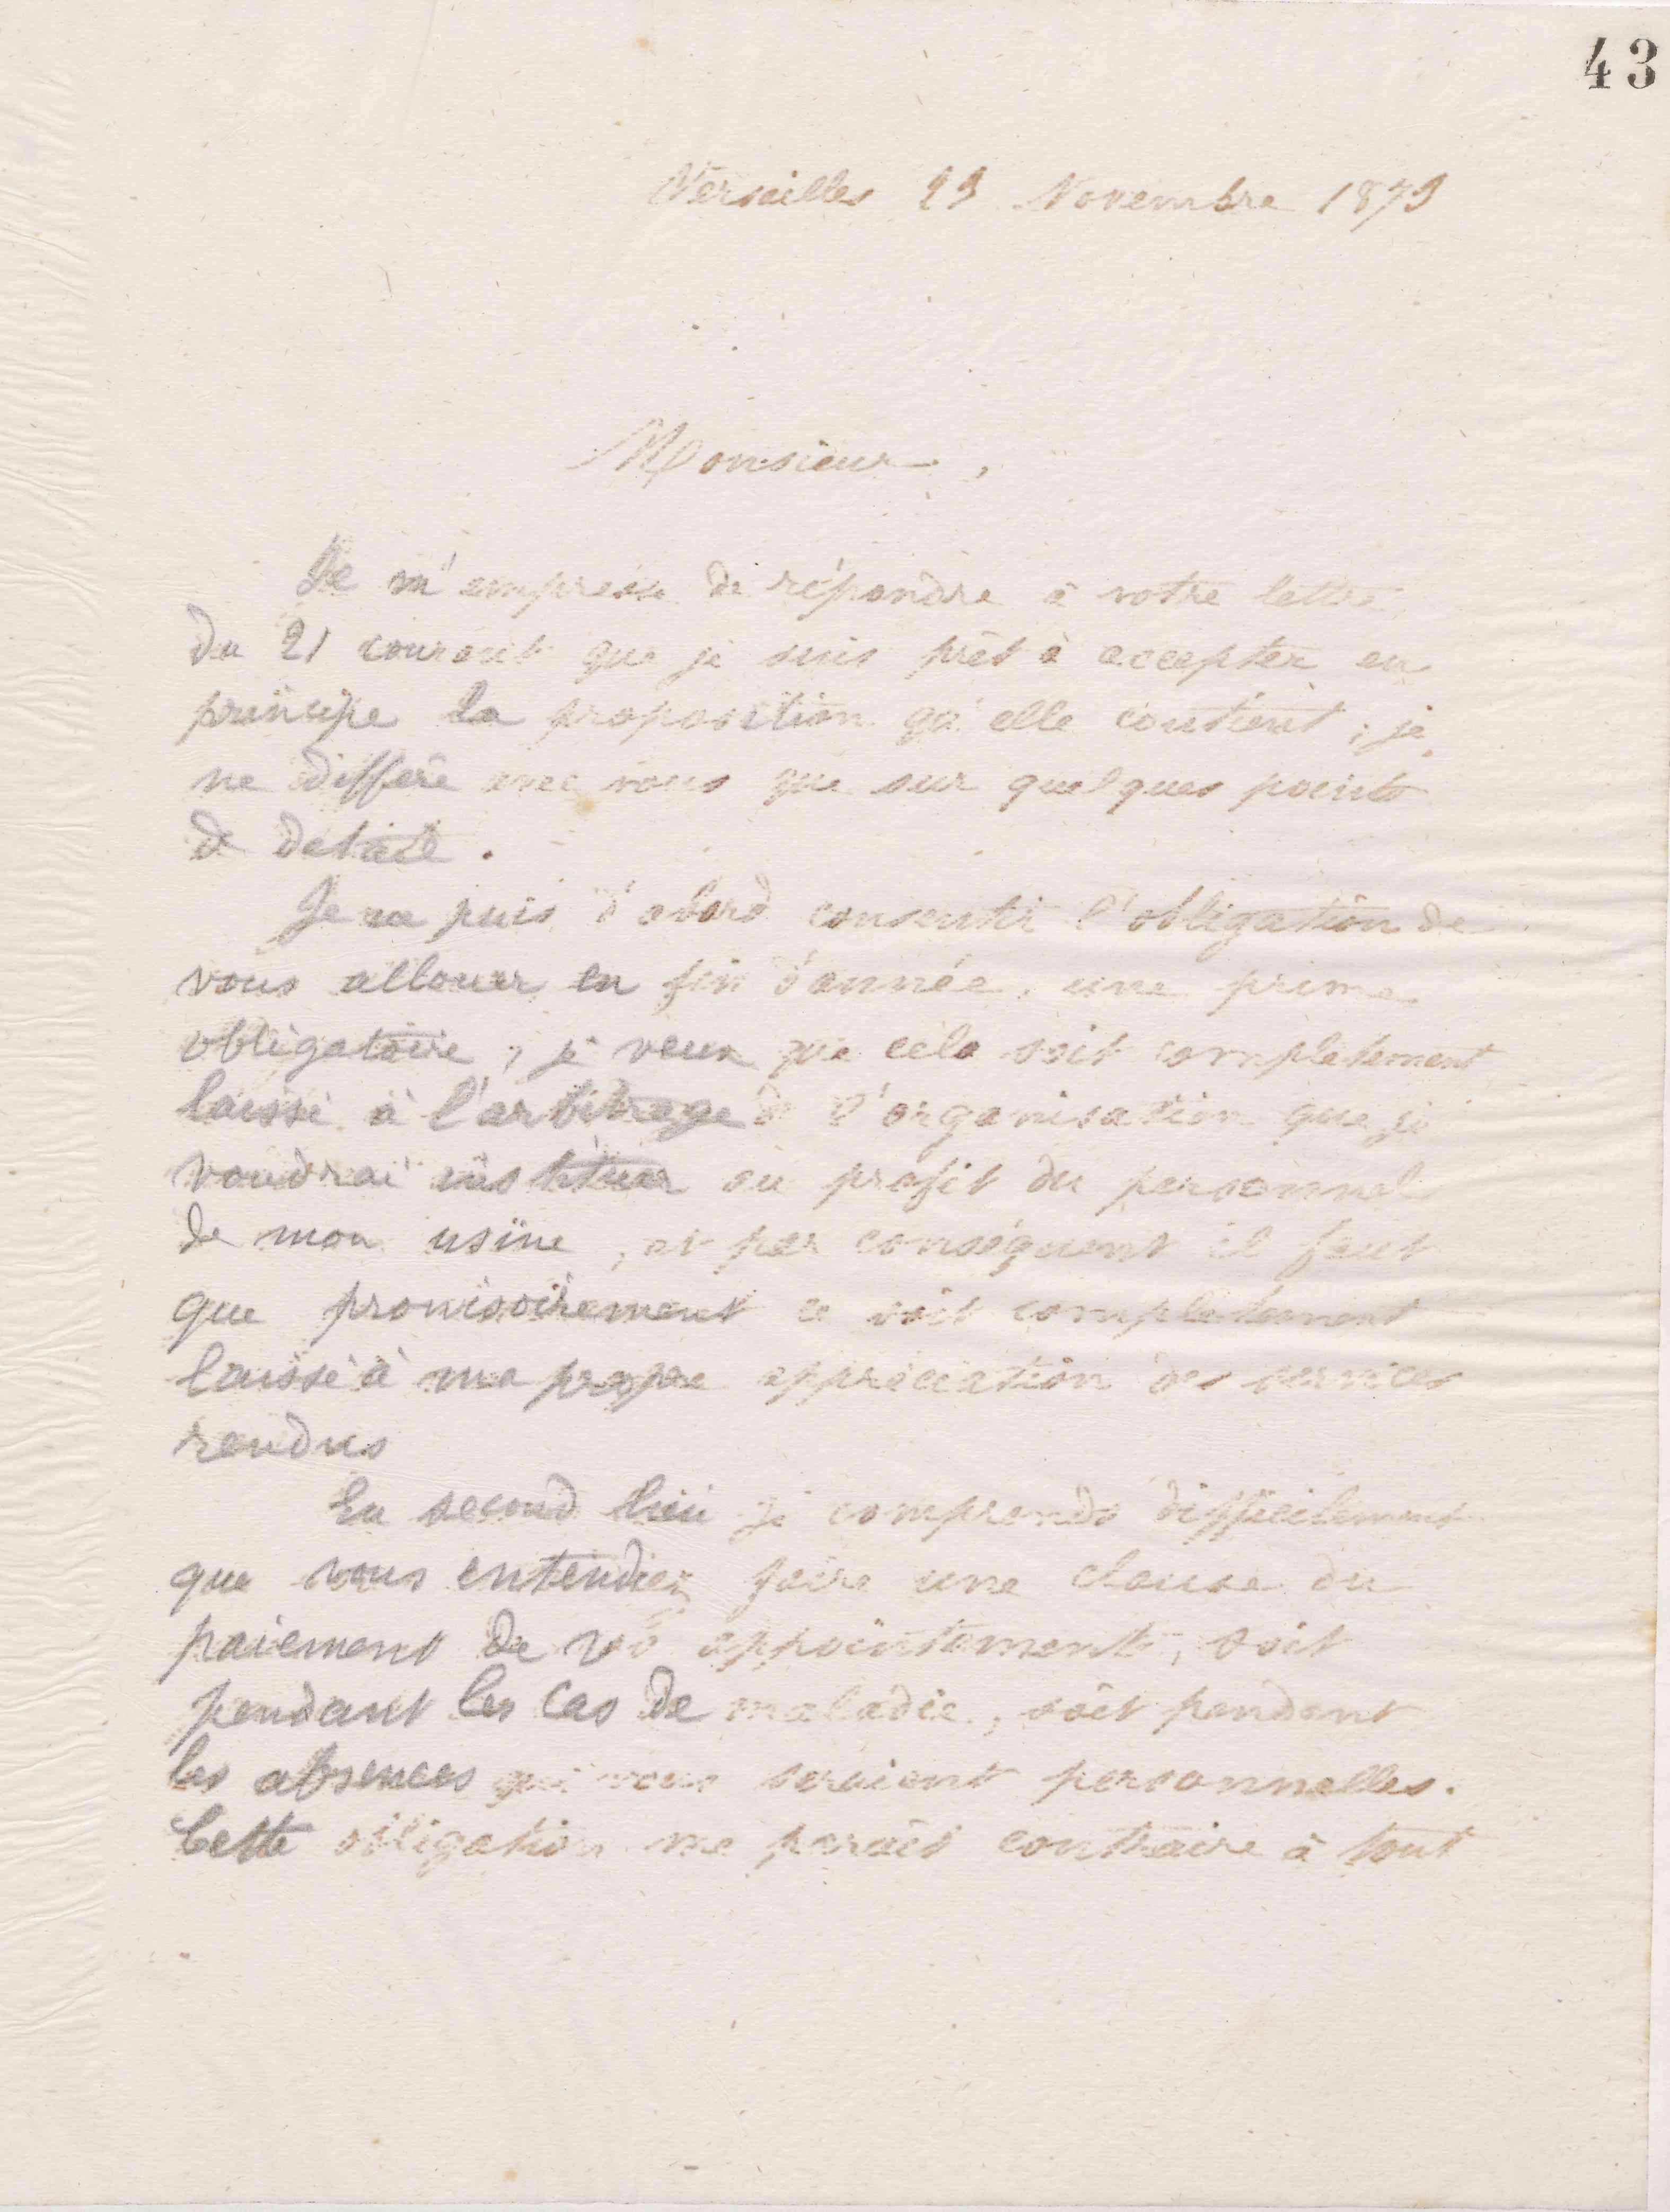 43
Versailles 23 Novembre 1873
Monsieur,
Je m'empresse de répondre à votre lettre
du 21 courant que je suis prêt à accepter en
principe la proposition qu'elle contient ; je
ne diffère avec vous que sur quelques points
de détail.
Je ne puis d'abord consentir l'obligation de
vous allouer en fin d'année, une prime
obligatoire, je veux que cela soit complètement
laissé à l'arbitrage de l'organisation que je
voudrai instituer au profit du personnel
de mon usine, et par conséquent il faut
que provisoirement ce soit complètement
laissé à ma propre appréciation des services
rendus
En second lieu je comprends difficilement
que vous entendiez faire une clause du
paiement de vos appointements, soit
pendant les cas de maladie, soit pendant
les absences qui vous seraient personnelles.
Cette obligation me paraît contraire à tout